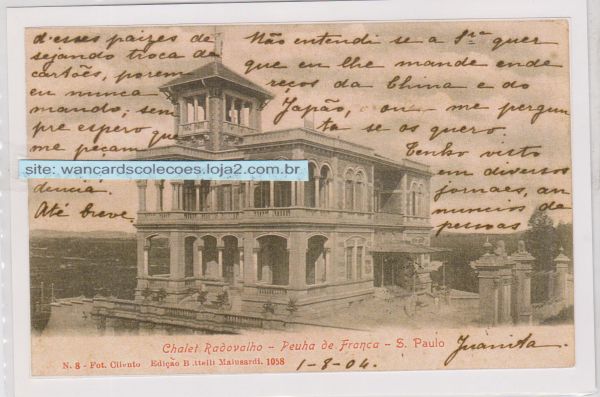 Não entendi se a Snra quer
que eu lhe mande ende
reços da China e do
Japão, ou me pergun
ta se os quero.
Tenho visto
em diversos
jornaes, an
nuncios de
pessoas
d'esses paizes de
sejando troca de
cartões, porem
eu nunca
mando, sem
pre espero que
me peçam
dencia.
Até breve
site: wancardscolecoes.loja2.com.br
Juanita
Chalet Rodovalho - Penha de França - S. Paulo
N. 8 - Fot. Edição Malusardi. 1058
1-8-04.